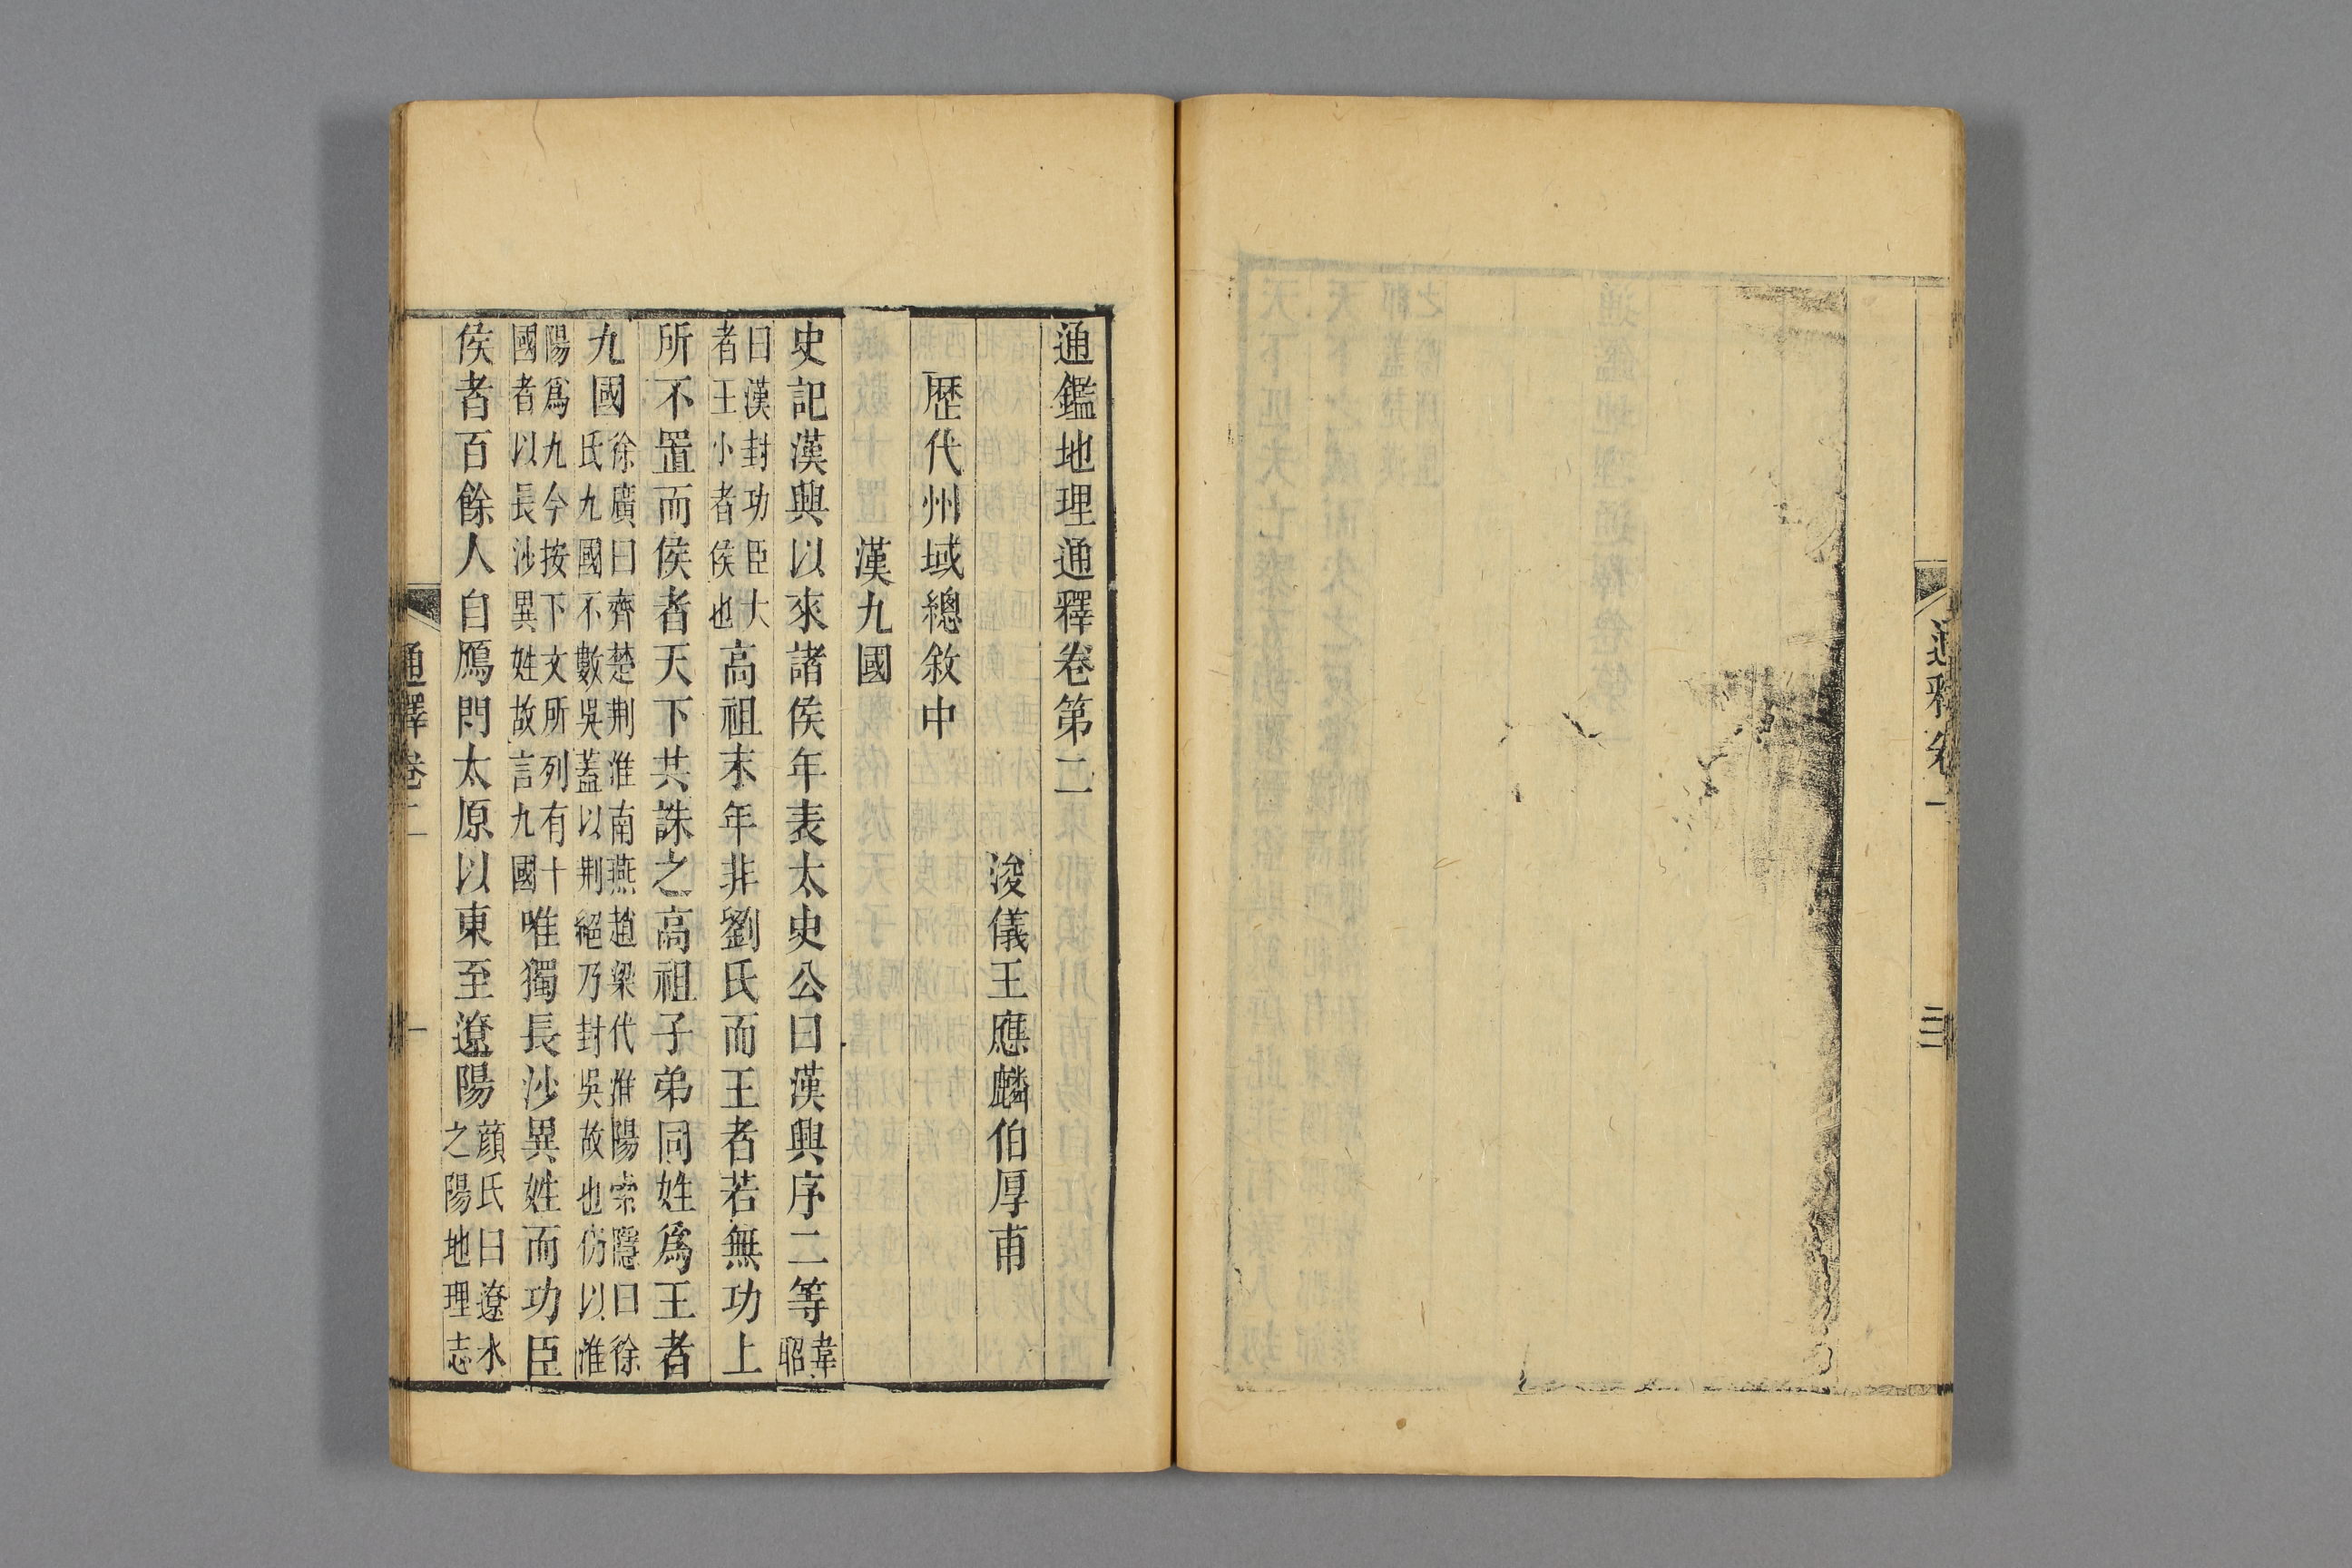 通釋卷一
三
通鑑地理通釋卷第二
浚儀王應麟伯厚甫
歷代州域總敘中
漢九國
史記漢興以來諸侯年表太史公曰漢興序二等韋昭
曰漢封功臣大者王小者侯也高祖末年非劉氏而王者若無功上
所不置而侯者天下共誅之高祖子弟同姓爲王者
九國徐廣曰齊楚荆淮南燕趙梁代淮陽索隱曰徐氏九國不數吳蓋以荆絕乃封吳故也仍以淮
陽爲九今按下文所列有十國者以長沙異姓故言九國唯獨長沙異姓而功臣
侯者百餘人自鴈門太原以東至遼陽顔氏曰遼水之陽地理志
通釋卷二
一